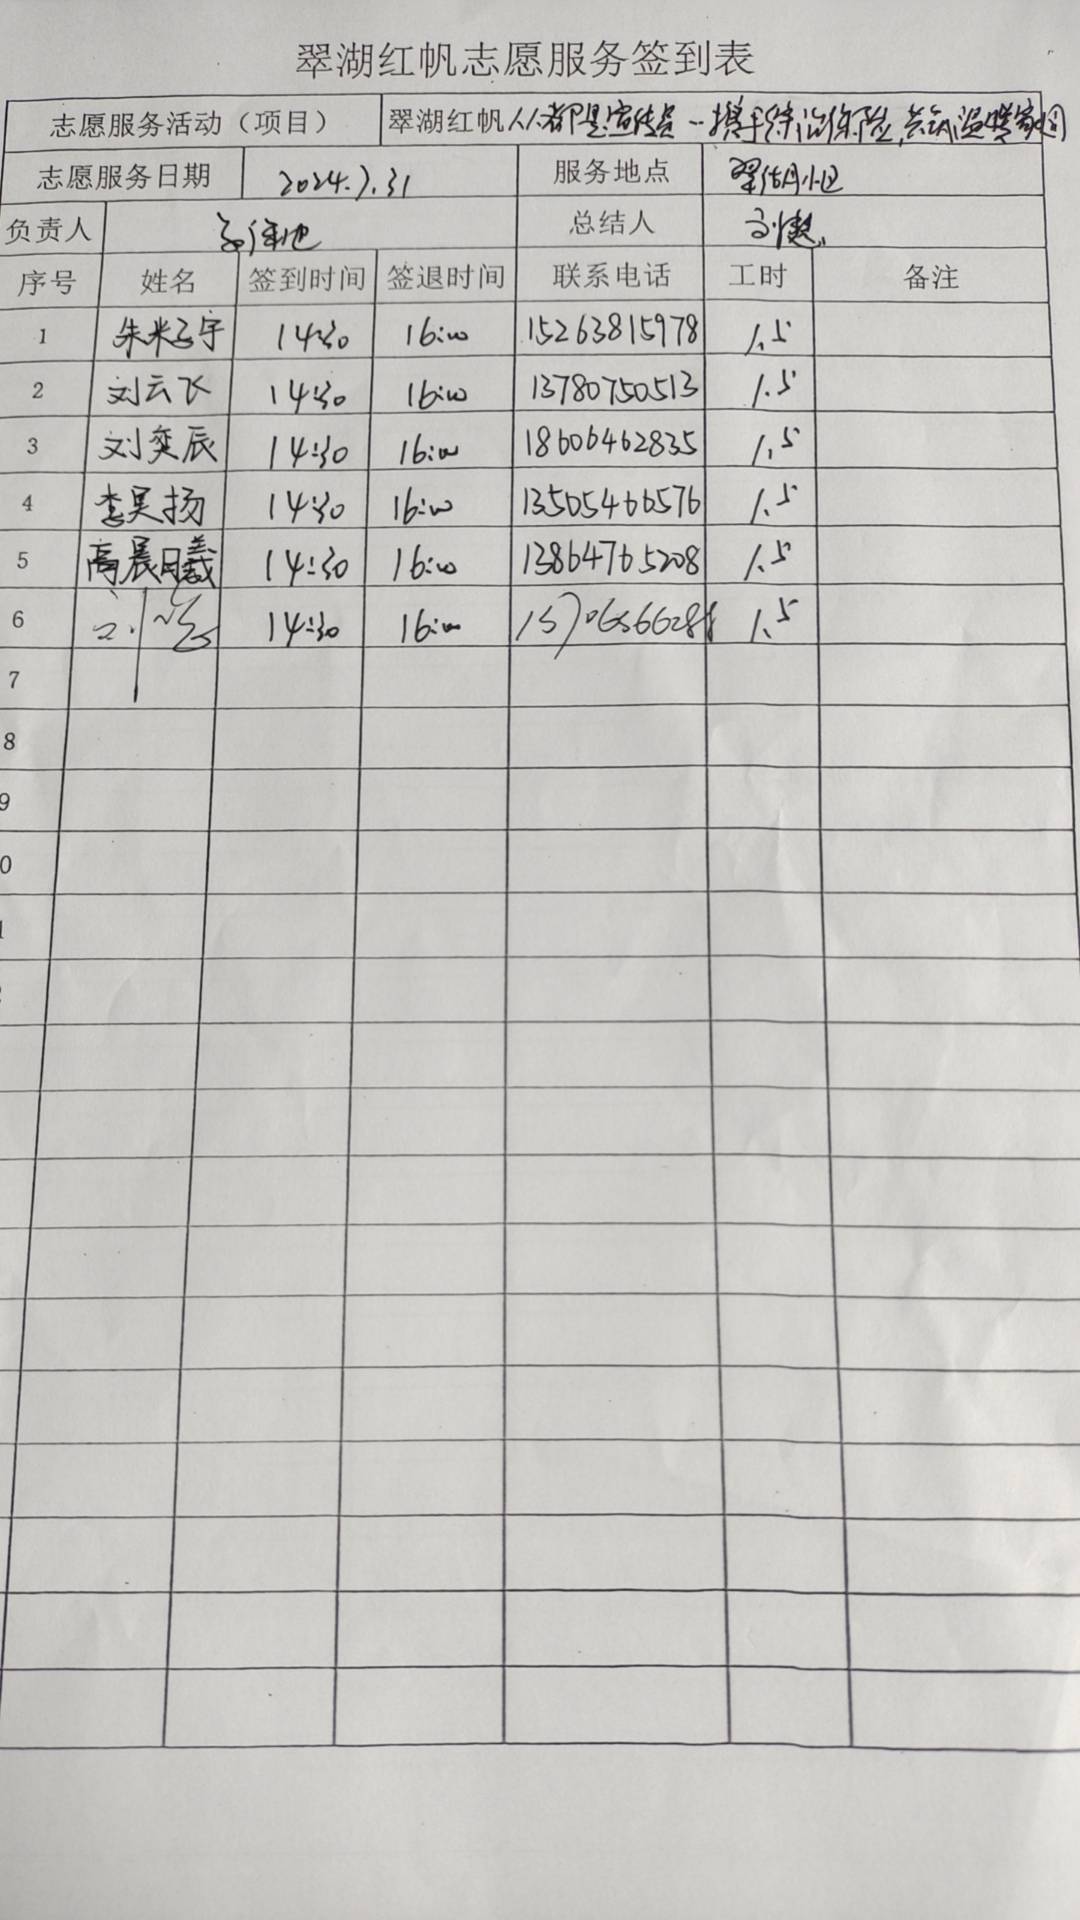 翠湖红帆志愿服务签到表
志愿服务活动（项目） 翠湖红帆人人都是宣传员
志愿服务日期 2024.7.31 服务地点 翠湖小区
负责人 总结人
序号 姓名 签到时间 签退时间 联系电话 工时 备注
1 朱米子宇 14:30 16:00 15263815978 1.5
2 刘云飞 14:30 16:00 13780750513 1.5
3 刘奕辰 14:30 16:00 18606462835 1.5
4 李昊扬 14:30 16:00 13505466576 1.5
5 高晨曦 14:30 16:00 13864765208 1.5
6 14:30 16:00 1.5
7
8
9
0
1